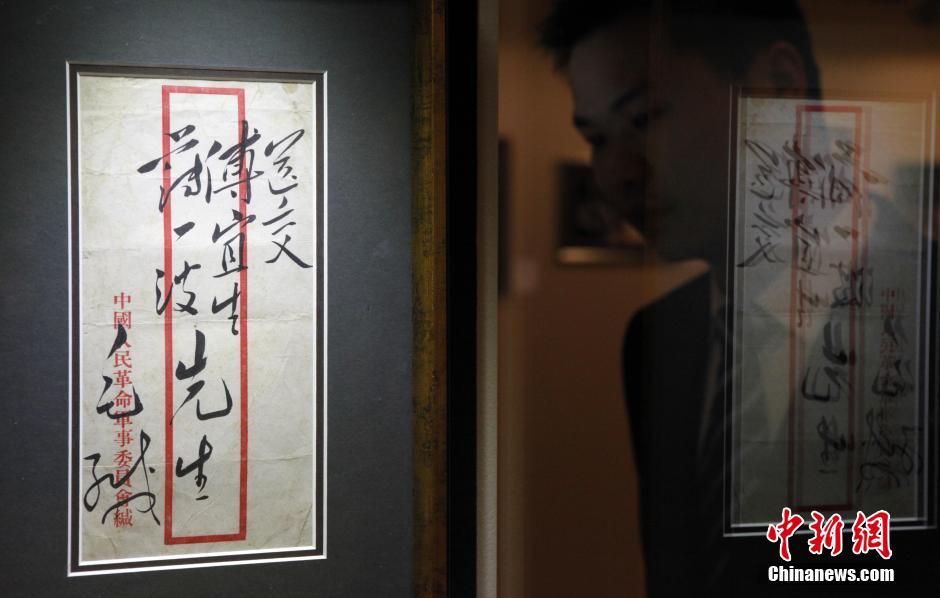 送交
傅宜生
薄一波
先生
毛緘
中國人民革命軍事委員會緘
中新網
Chinanews.com